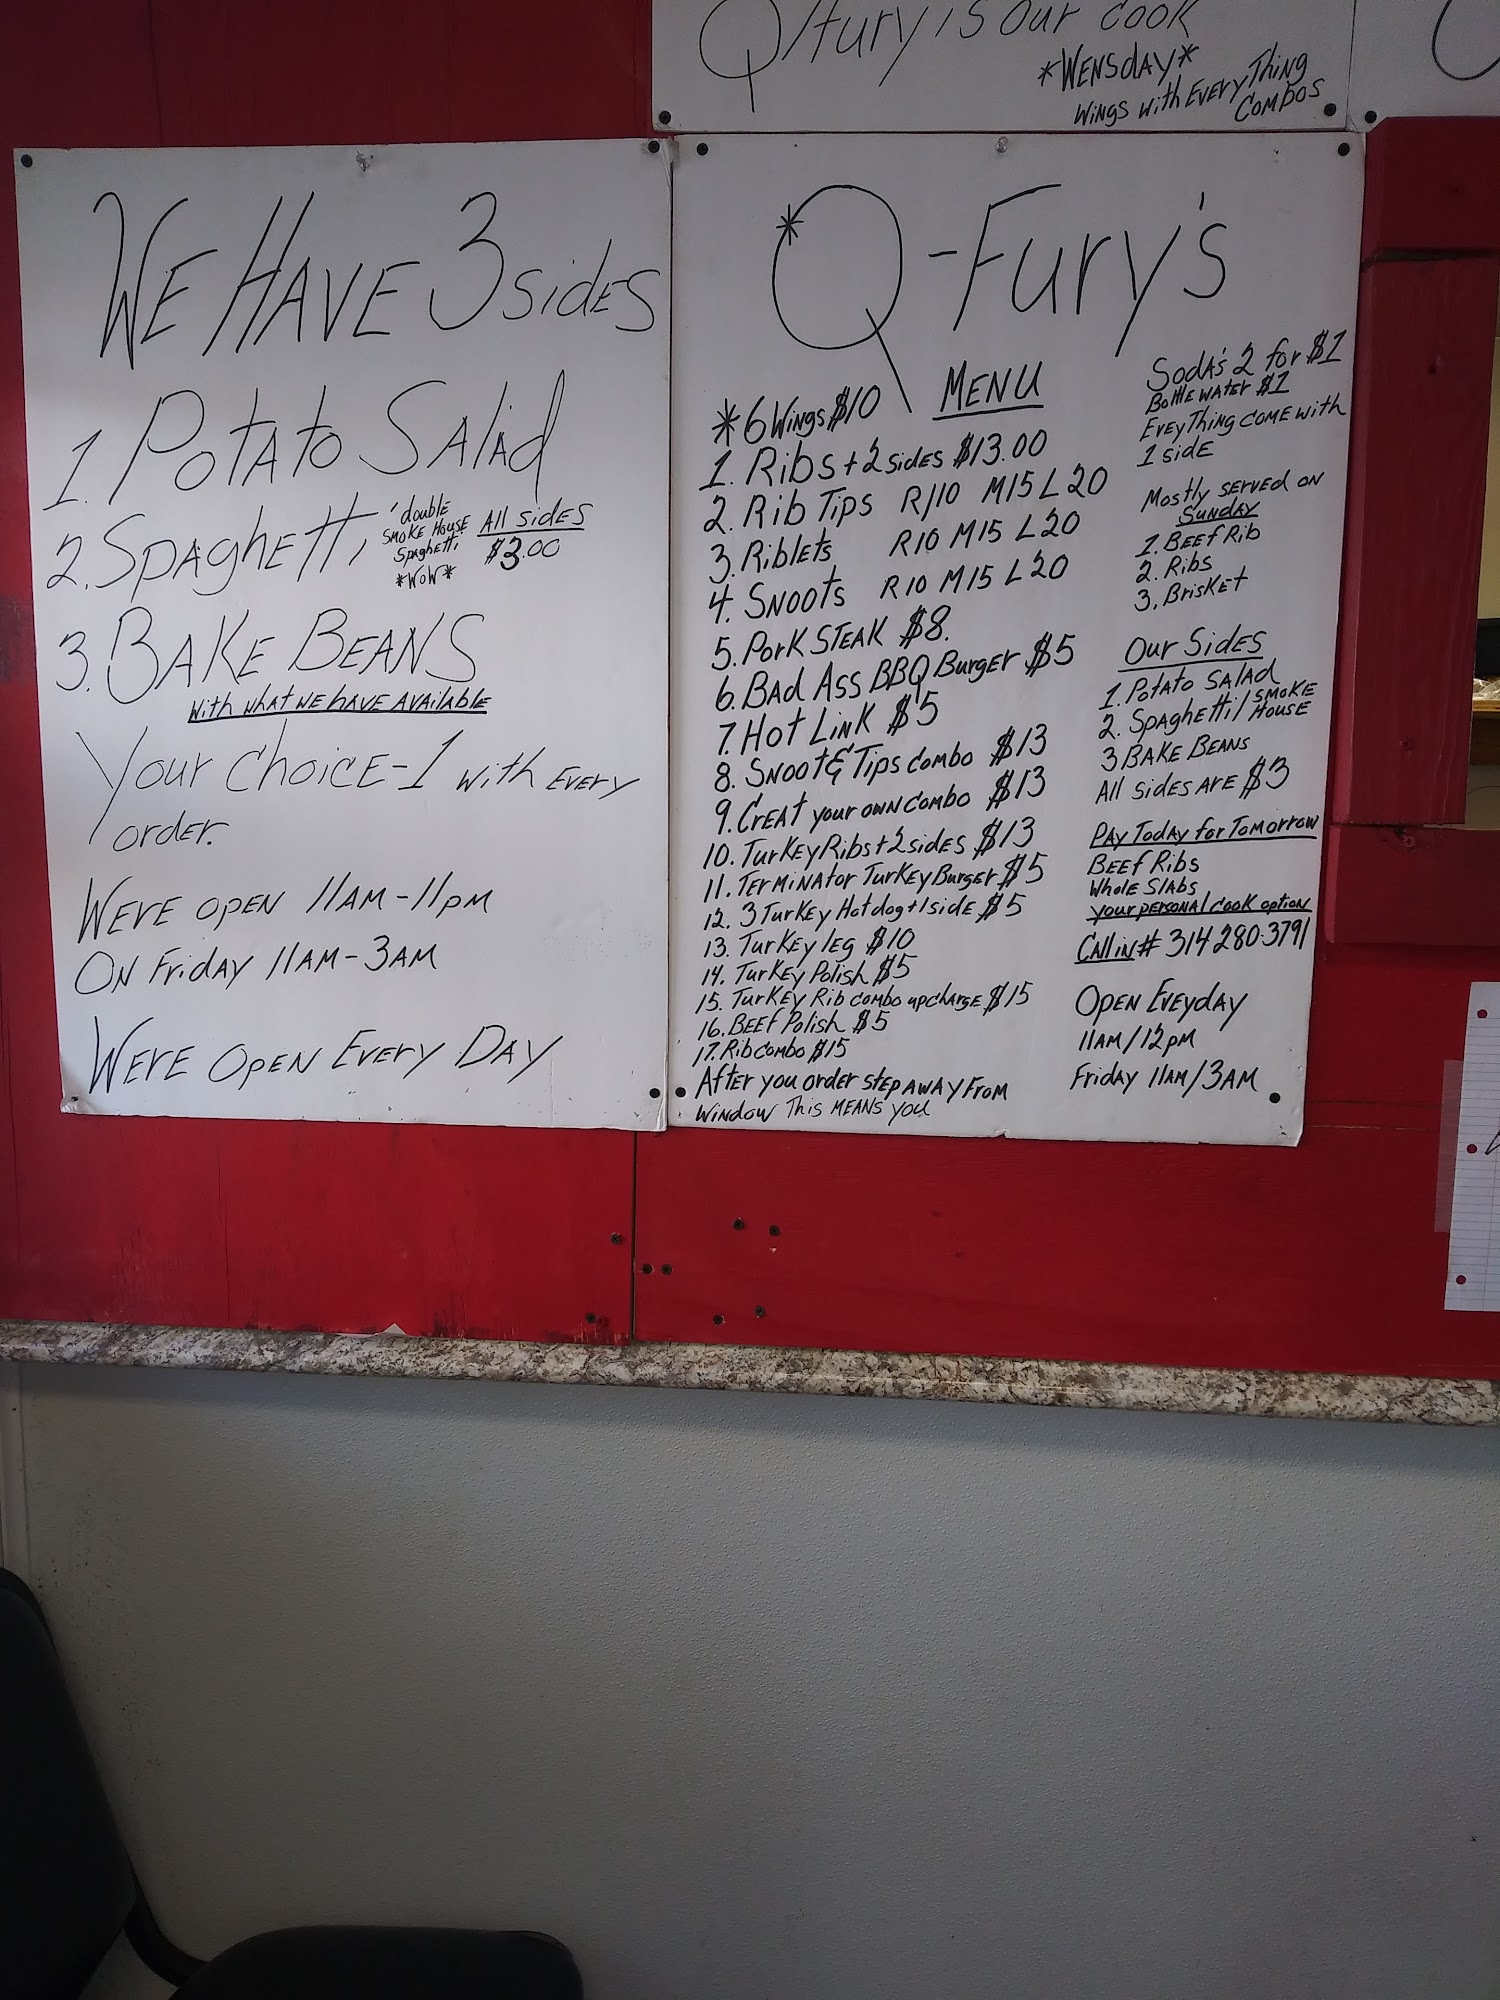 Q/fury is our cook
*WENSDAY*
Wings with EVERYThing
Combos
WE HAVE 3 sidES
1. Potato Salad
2. Spaghetti
'double
Smoke House
Spaghetti
*WOW*
All sidES
$3.00
3. BAKE BEANS
With what WE have AVAilablE
Your Choice-1 with EVERY
order.
WErE opEN 11AM-11pm
ON Friday 11AM-3AM
WErE OpEN EvEry DAY
*Q-Fury's
MENU
*6 Wings $10
1. Ribs + 2 sides $13.00
2. Rib Tips R/10 M15 L20
3. Riblets R10 M15 L20
4. SNOOTS R10 M15 L20
5. Pork STEAK $8.
6. Bad Ass BBQ BurgEr $5
7. Hot LiNK $5
8. SNOOT & Tips combo $13
9. CrEAT your owN combo $13
10. TurKEy Ribs + 2 sidES $13
11. TErmiNAtor TurKEy BurgEr $5
12. 3 TurKEy Hotdog + 1 sidE $5
13. TurKEy leg $10
14. TurKEy Polish $5
15. TurKEy Rib combo upchargE $15
16. BEEf Polish $5
17. Rib combo $15
AftEr you ordEr stEp AWAY From
WiNdow This MEANS you
Soda's 2 for $1
BottlE WAtEr $1
EvEyThing comE with
1 sidE
Mostly SErvEd oN
Sunday
1. BEEf Rib
2. Ribs
3. BrisKEt
Our SidES
1. Potato SAlad
2. Spaghetti/SmoKE
HousE
3 BAKE BEANS
All sidES ArE $3
PAy Today for Tomorrow
BEEf Ribs
WholE SlAbs
your pErsonal cook option
Call in # 314 280-3791
OpEN EvEyday
11AM/12pm
Friday 11AM/3AM